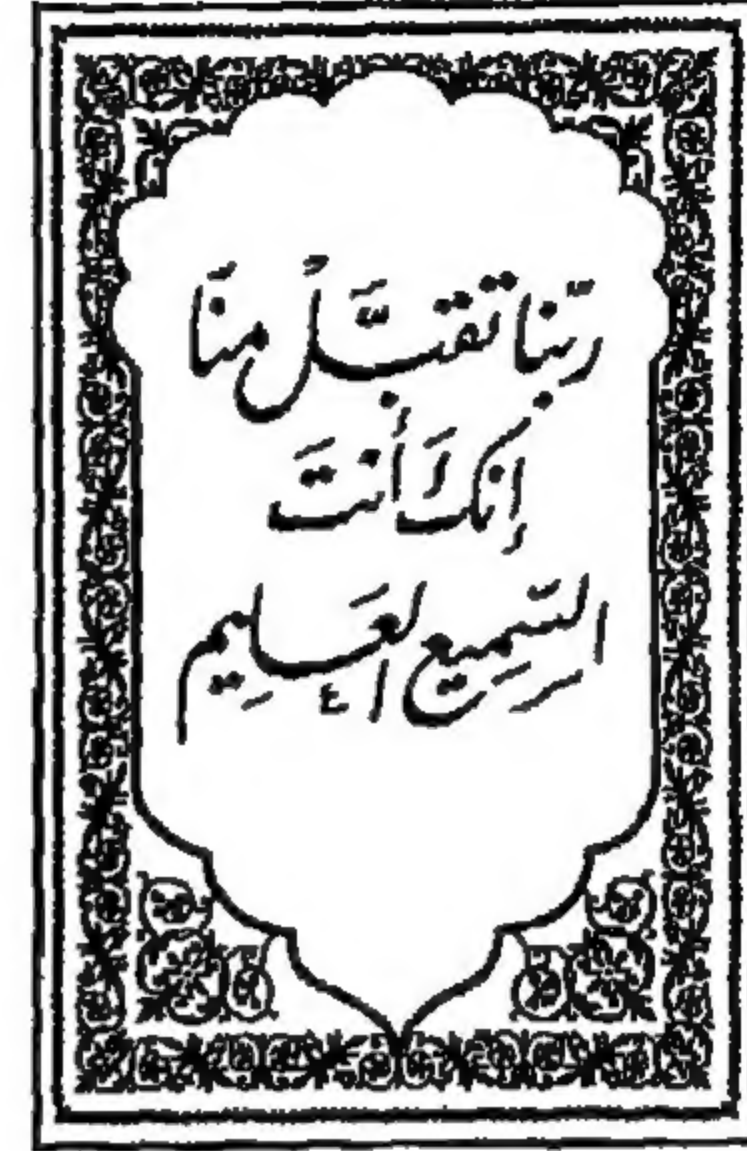 ربّنا تقبَّلْ منَّا
إنكَ أنتَ
السّمِيع العَلِيم